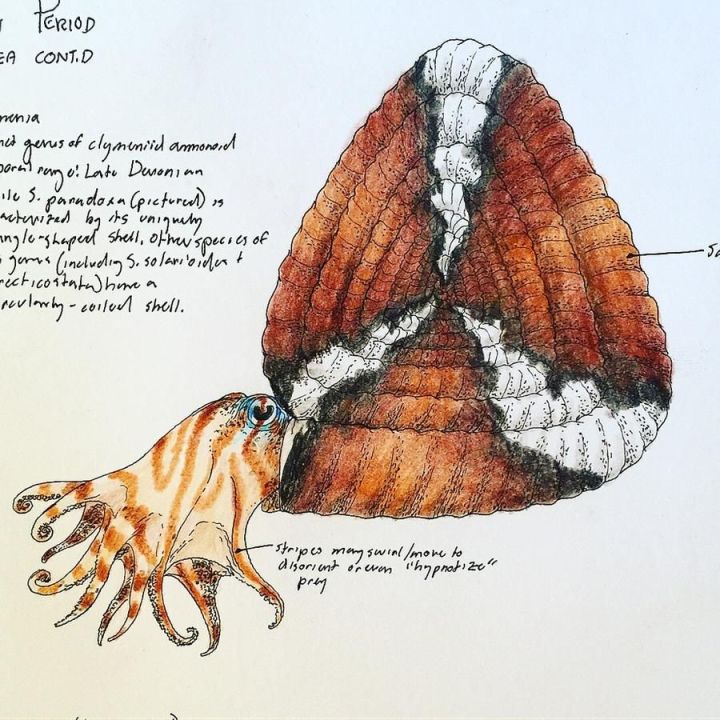 PERIOD
EA CONT.D
nct genus of clymeniid ammonoid
poral range: Late Devonian
ile S. paradoxa (pictured) is
acterized by its uniquely
angle-shaped shell, other species of
genus (including S. solarioides +
recticostata) have a
rcularly-coiled shell.
stripes may swirl/move to
disorient or even "hypnotize"
prey